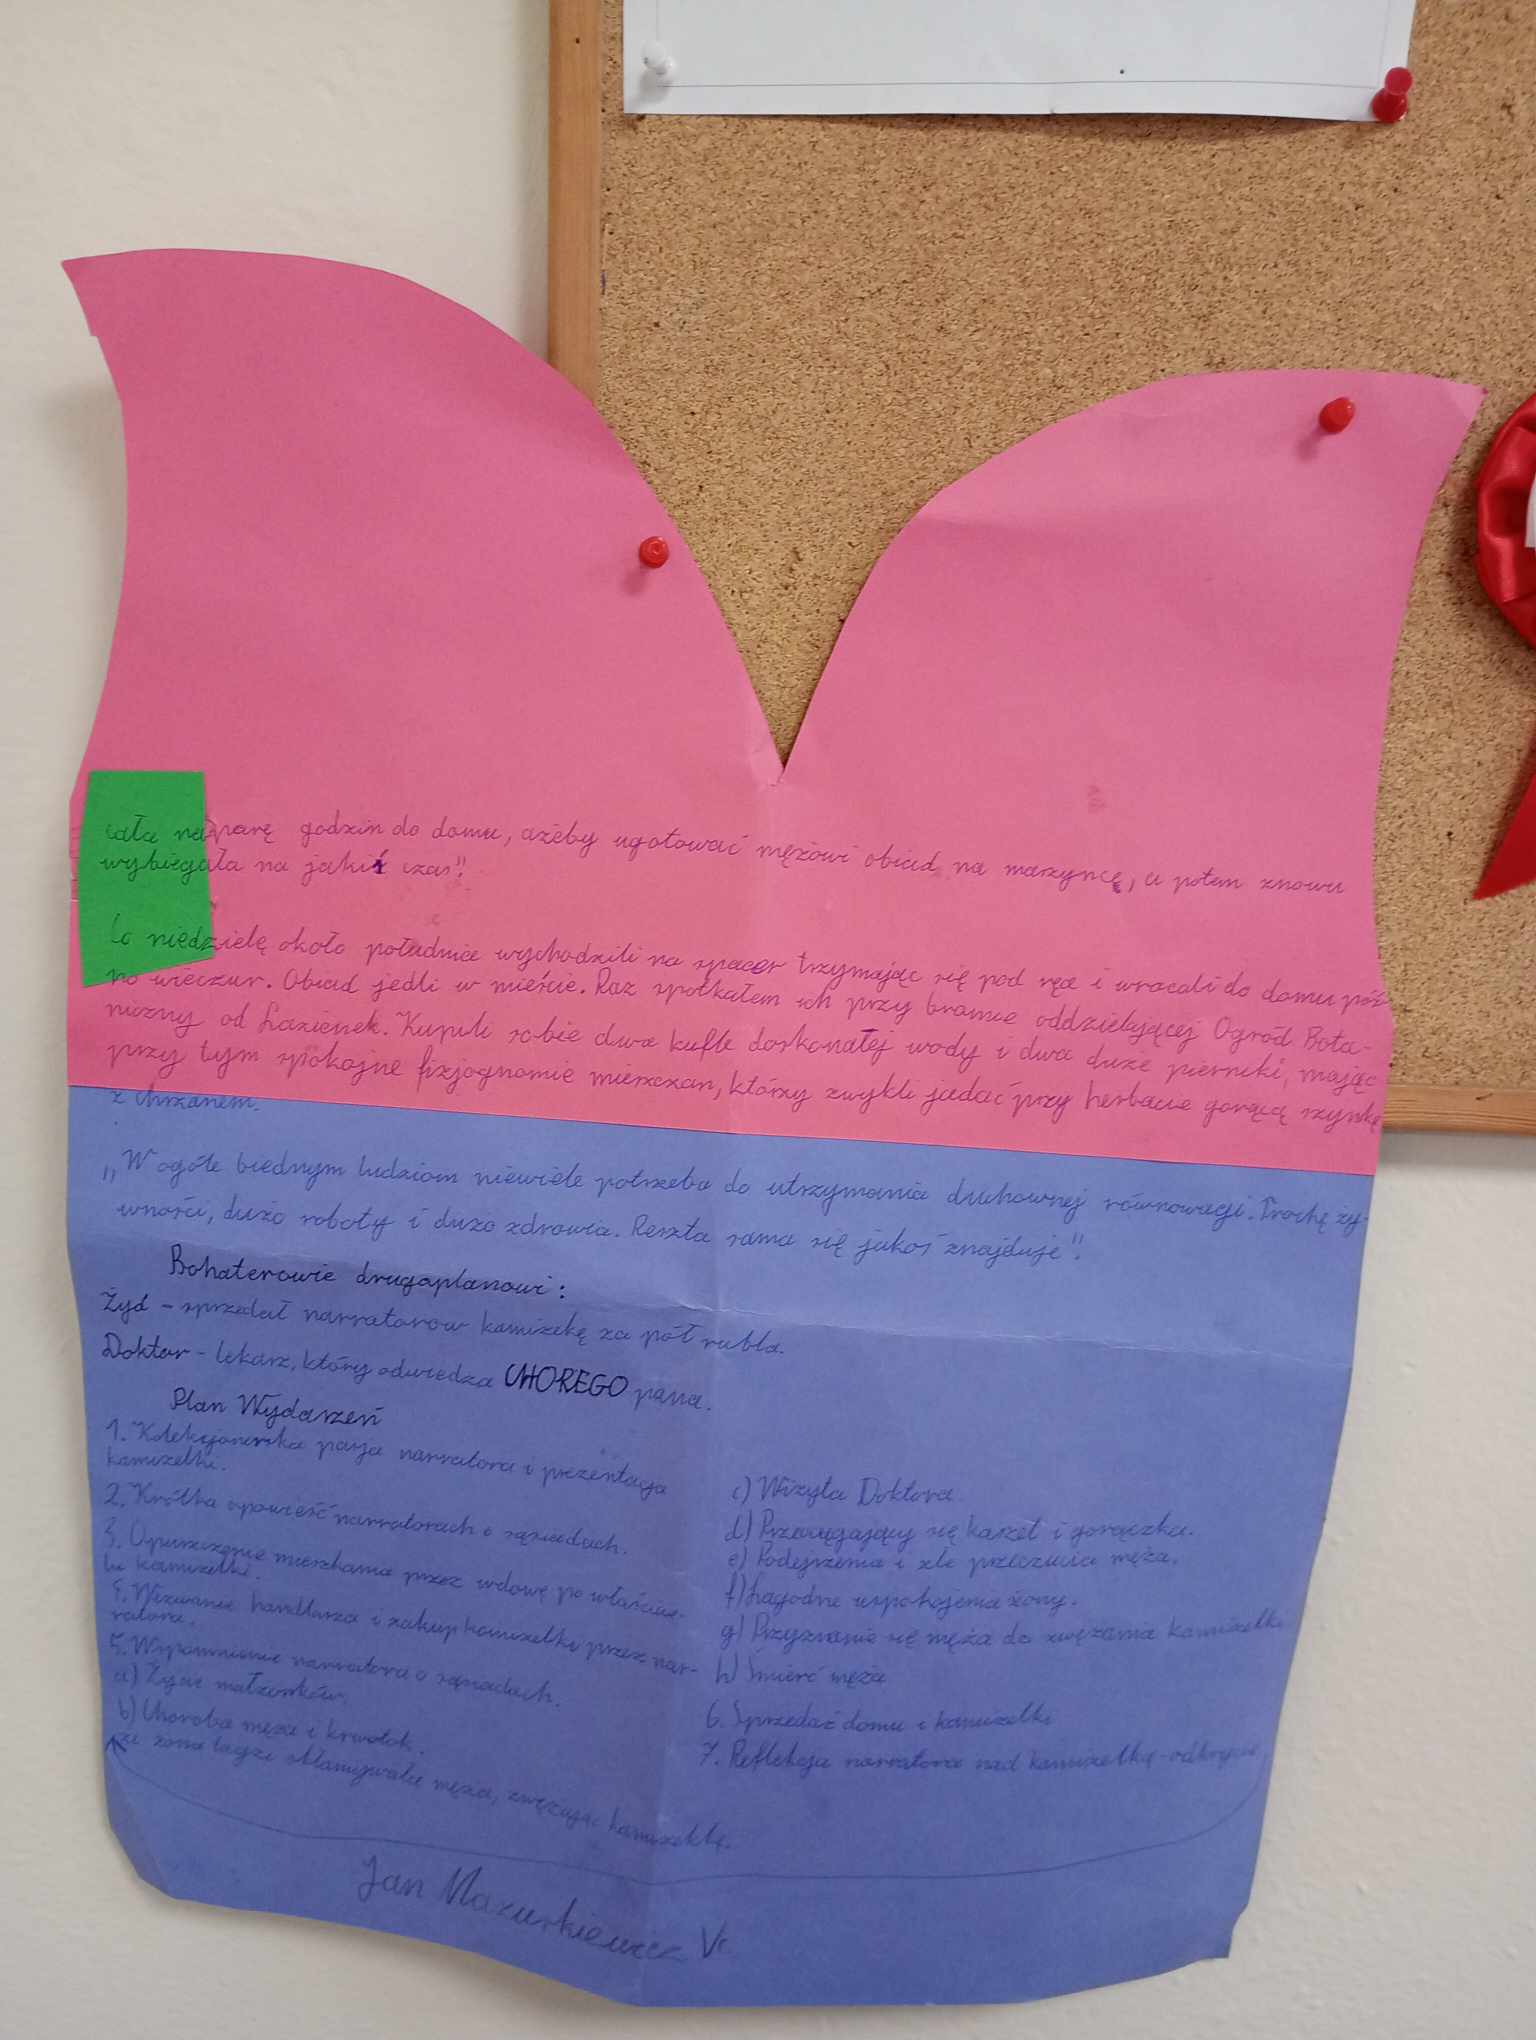 cała na parę godzin do domu, ażeby ugotować mężowi obiad na maszynce, a potem znowu
wybiegała na jakiś czas".
Co niedzielę około południa wychodzili na spacer trzymając się pod ręce i wracali do domu póź-
no wieczur. Obiad jedli w mieście. Raz spotkałem ich przy bramie oddzielającej Ogród Bota-
niczny od Łazienek. Kupili sobie dwa kufle doskonałej wody i dwa duże pierniki, mając
przy tym spokojne fizjognomie mieszczan, którzy zwykli jadać przy herbacie gorącą szynkę
z chrzanem.
„W ogóle biednym ludziom niewiele potrzeba do utrzymania duchownej równowagi. Trochę ży-
wności, dużo roboty i dużo zdrowia. Reszta sama się jakoś znajduje".
Bohaterowie drugoplanowi:
Żyd - sprzedał narratorow kamizekę za pół rubla.
Doktor - lekarz, który odwiedza CHOREGO pana.
Plan Wydarzeń
1. Kolekcjonerska pasja narratora i prezentacja
kamizelki.
2. Krótka opowieść narratorach o sąsiadach.
3. Opuszczenie mieszkania przez wdowę po właścicie-
lu kamizelki.
4. Wezwanie handlarza i zakup kamizelki przez nar-
ratora.
5. Wspomnienie narratora o sąsiadach.
a) Życie małżonków.
b) Choroba męża i krwotok.
c) Wizyta Doktora
d) Przeciągający się kaszel i gorączka.
e) Podejrzenia i złe przeczucia męża.
f) Łagodne uspokojenia żony.
g) Przyznanie się męża do zwężania kamizelki
h) Śmierć męża
6. Sprzedaż domu i kamizelki
7. Refleksja narratora nad kamizelką-odkrycie,
że żona także okłamywała męża, zwężając kamizelkę.
Jan Mazurkiewicz Vc